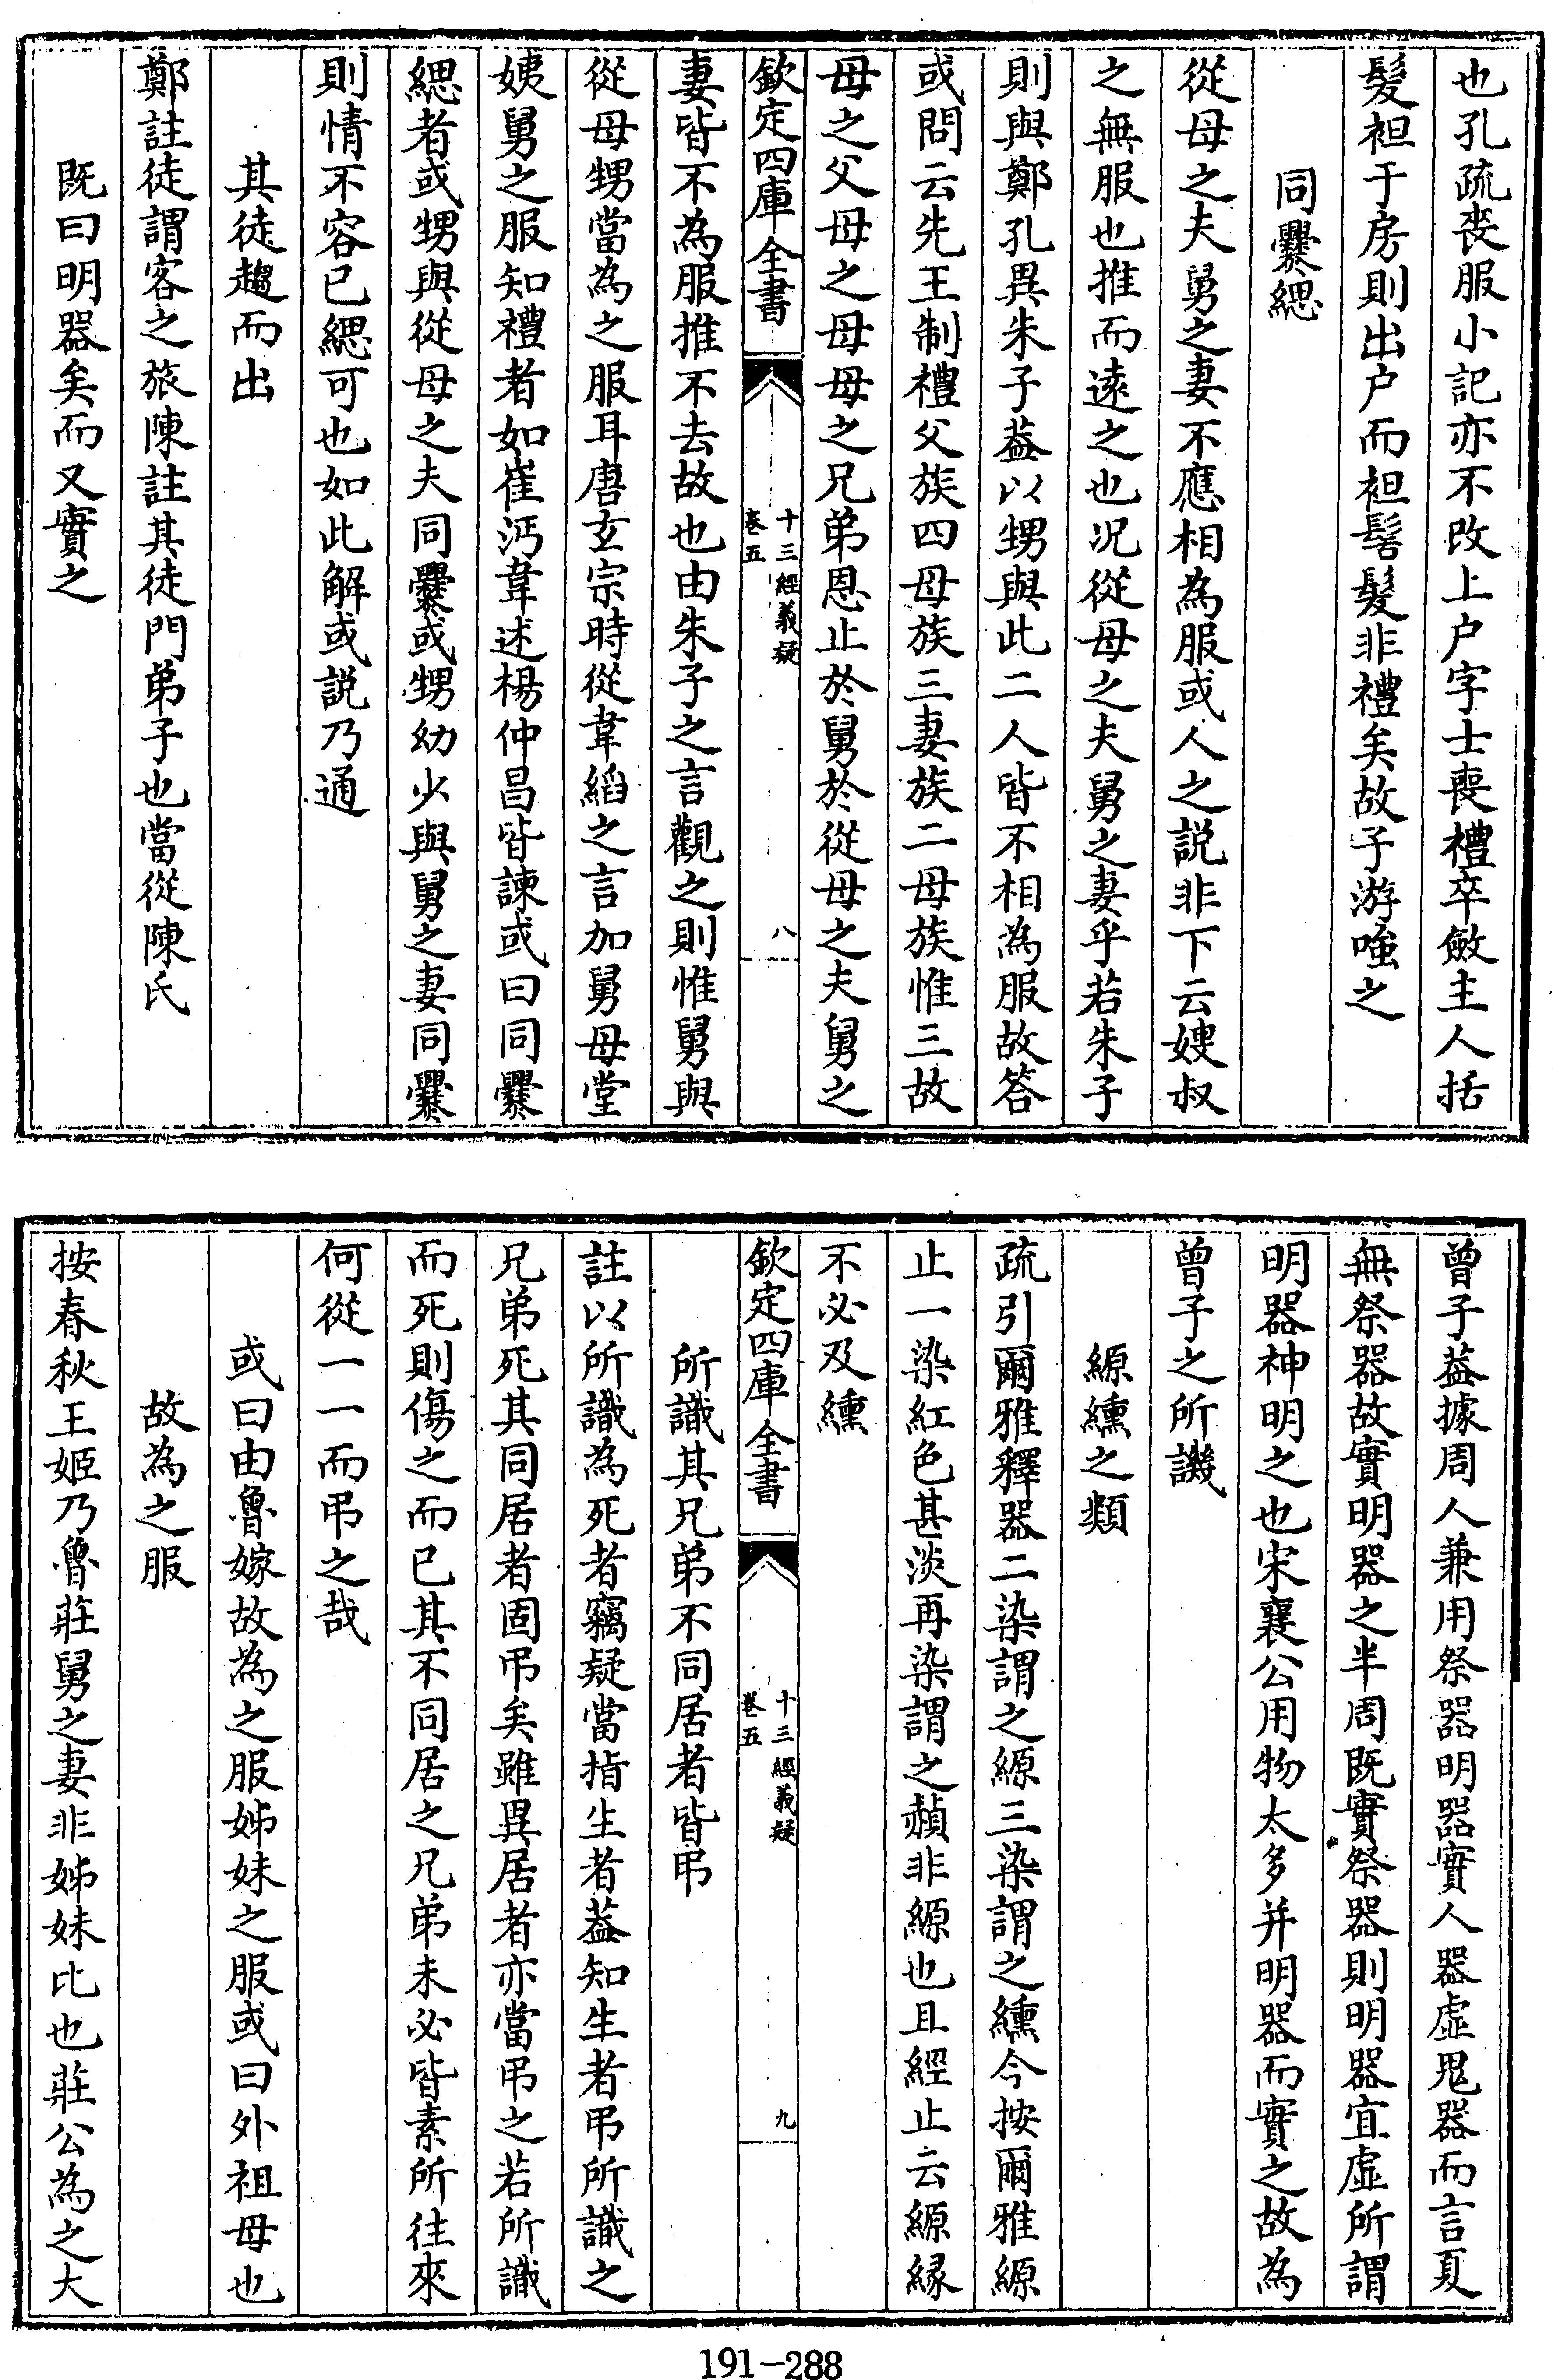 也孔疏喪服小記亦不改上户字士喪禮卒斂主人括
髮袒于房則出户而袒髻髮非禮矣故子游嗤之
同爨緦
從母之夫舅之妻不應相為服或人之説非下云嫂叔
之無服也推而遠之也况從母之夫舅之妻乎若朱子
則與鄭孔異朱子葢以甥與此二人皆不相為服故答
或問云先王制禮父族四母族三妻族二母族惟三故
母之父母之母母之兄弟恩止於舅於從母之夫舅之
欽定四庫全書
十三經義疑
卷五
八
妻皆不為服推不去故也由朱子之言觀之則惟舅與
從母甥當為之服耳唐玄宗時從韋縚之言加舅母堂
姨舅之服知禮者如崔沔韋述楊仲昌皆諫或曰同爨
緦者或甥與從母之夫同爨或甥幼少與舅之妻同爨
則情不容已緦可也如此解或説乃通
其徒趨而出
鄭註徒謂客之旅陳註其徒門弟子也當從陳氏
既曰明器矣而又實之
曾子葢據周人兼用祭器明器實人器虛鬼器而言夏
無祭器故實明器之半周既實祭器則明器宜虛所謂
明器神明之也宋襄公用物太多并明器而實之故為
曾子之所譏
縓纁之類
疏引爾雅釋器二染謂之縓三染謂之纁今按爾雅縓
止一染紅色甚淡再染謂之赬非縓也且經止云縓緣
不必及纁
欽定四庫全書
十三經義疑
卷五
九
所識其兄弟不同居者皆弔
註以所識為死者竊疑當指生者葢知生者弔所識之
兄弟死其同居者固弔矣雖異居者亦當弔之若所識
而死則傷之而已其不同居之兄弟未必皆素所往來
何從一一而弔之哉
或曰由魯嫁故為之服姊妹之服或曰外祖母也
故為之服
按春秋王姬乃魯莊舅之妻非姊妹比也莊公為之大
191-288